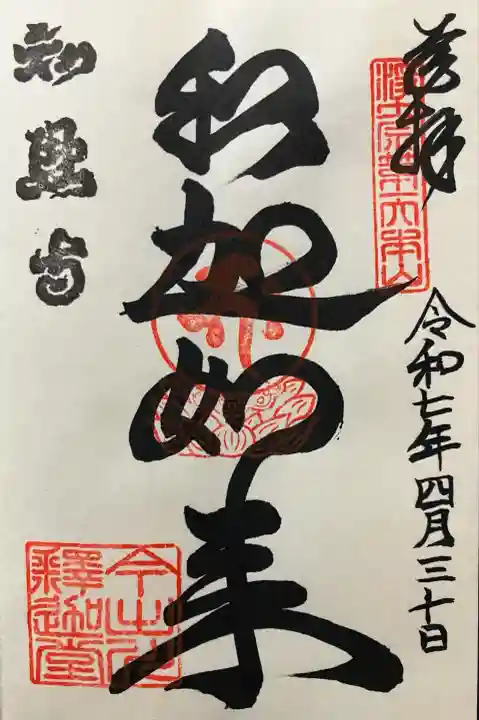 奉拝
令和七年四月三十日
釈迦如来
今出川
釋迦堂
知恩寺